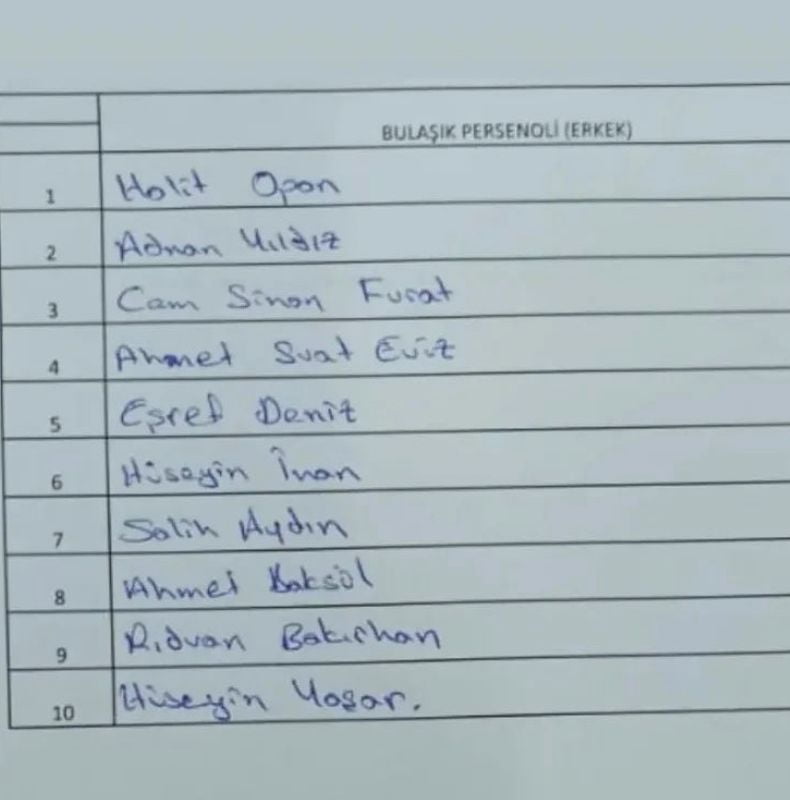 BULAŞIK PERSENOLİ (ERKEK)
1 Halit Opan
2 Adnan Yıldız
3 Cam Sinan Furat
4 Ahmet Suat Eviz
5 Eşref Deniz
6 Hüseyin İnan
7 Salih Aydın
8 Ahmet
9 Rıdvan Bakırhan
10 Hüseyin Yaşar.